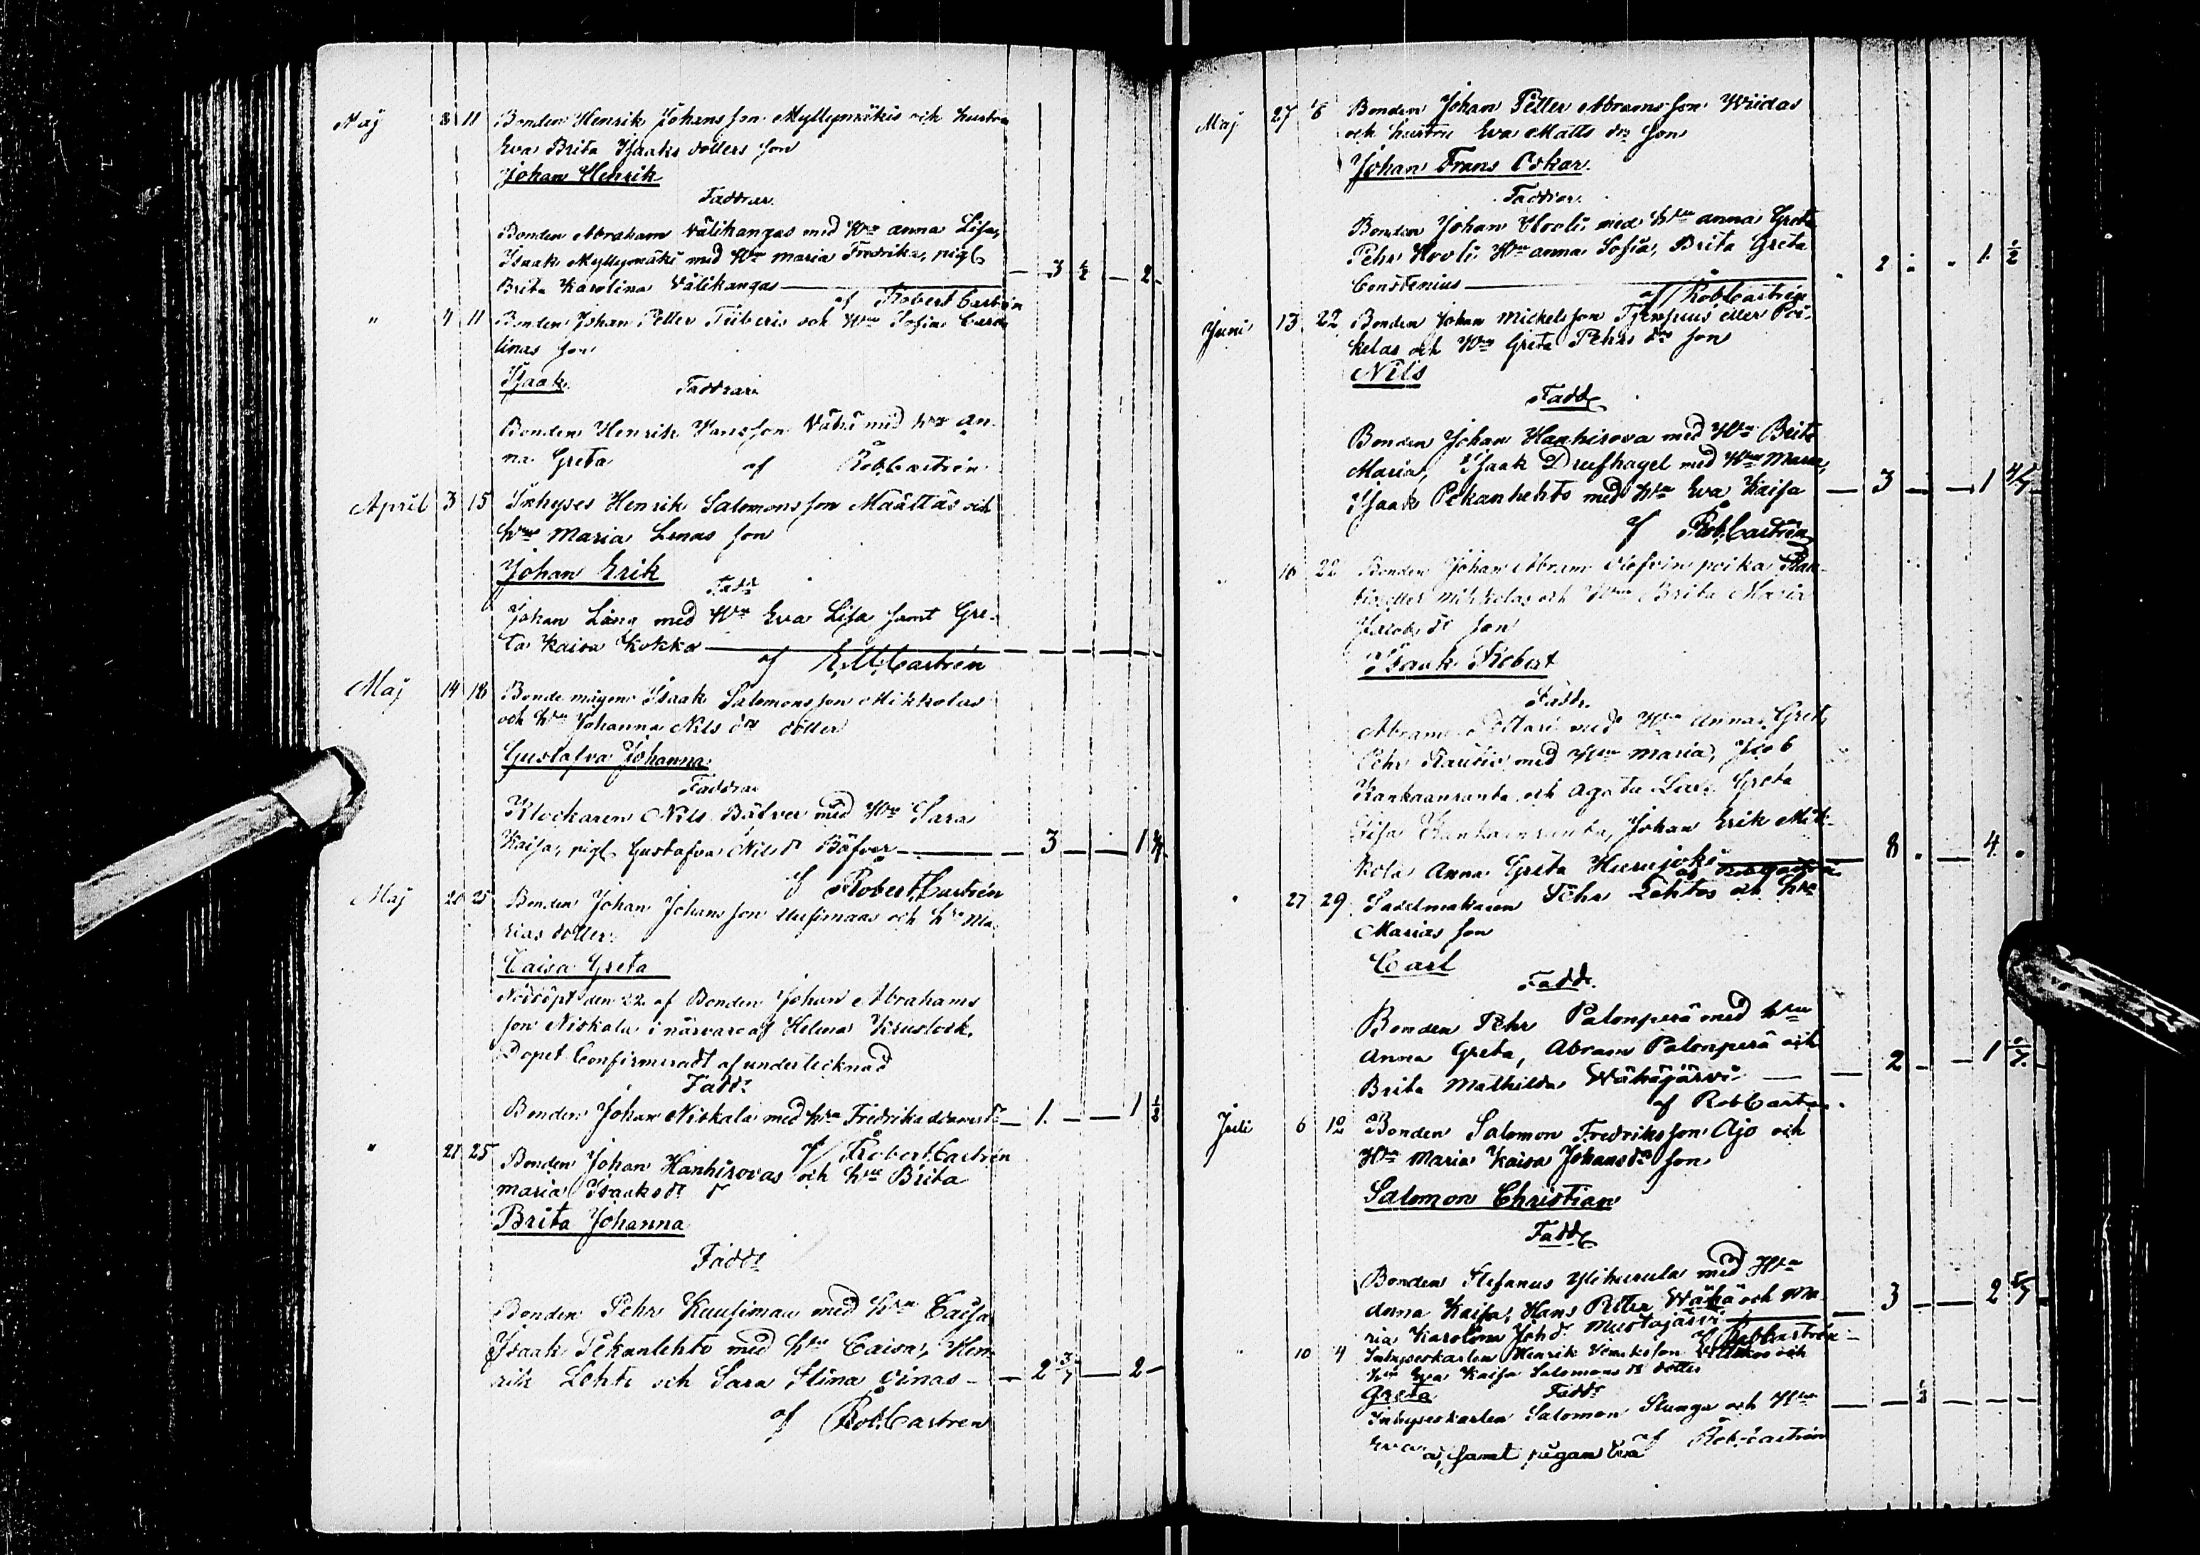 Maj 8 11 Bonden Henrik Johansson Myllymäkis och hustru
Eva Brita Isaaks dotters son
Johan Henrik
Faddrar
Bonden Abraham Välikangas med H:u Anna Lisa,
Isaak Myllymäki med H:u Maria Fredrika, pig.
Brita Karolina Välikangas — 3 ½ — 2
af Robert Castrén
" 4 11 Bonden Johan Petter Tiiberis och H:u Sofia Caro
linas son
Isaak
Faddrar
Bonden Henrik Hansson Vähä med h:u An
na Greta
af Rob. Castrén
April 3 15 Inhyses Henrik Salomonsson Määttäs och
h:u Maria Lenas son
Johan Erik
Fadd:
Johan Lång med H:u Eva Lisa samt Gre-
ta Kaisa Kokko —
af E.M. Castrén
Maj 14 18 Bonde mågen Isaak Salomonsson Mikkolas
och h:u Johanna Nils d:r dotter
Gustafva Johanna
Faddrar
Klockaren Nils Bäfver med H:u Sara
Kaisa, pig. Gustafva Nils d: Bäfver — 3 — 1
af Robert Castrén
Maj 20 25 Bonden Johan Johansson Kuusimaas och h:u Ma
rias dotter
Caisa Greta
Nöddöpt den 22 af Bonden Johan Abrahams
son Niskala i närvaro af Helena Kruslock.
Dopet Confirmeradt af undertecknad
Fadd:
Bonden Johan Niskala med h:u Fredrika — 1. — 1
af Robert Castrén
" 21 25 Bonden Johan Hanhirovas och h:u Brita
Maria Isaaks d: d
Brita Johanna
Fadd:
Bonden Pehr Kuusimaa med h:u Caisa
Isaak Pekanlehto med h:u Caisa, Hen
rik Lehto och Sara Stina Vinas — 2 3/7 — 2 —
af Rob. Castren
Maj 27 8 Bonden Johan Petter Abramsson Wiidas
och hustru Eva Matts d:r son
Johan Frans Oskar.
Faddrar.
Bonden Johan Hooli med h:u Anna Greta
Pehr Hooli H:u Anna Sofia, Brita Greta
Constenius — 2 1 ½
af Rob Castrén
Juni 13 22 Bonden Johan Mickelsson eller Poi
kelas och H:u Greta Pehrs d:r son
Nils
Fadd.
Bonden Johan Hanhirova med H:u Brita
Maria, Isaak Drufhagel med H:u Maria,
Isaak Pekanlehto med h:u Eva Kaisa — 3 — 1 4/7
af Rob. Castrén
16 22 Bonden Johan Abram poika Rau
tio eller Mikkolas och H:u Brita Maria
Jacobs d: son
Isaak Robert
Fadd.
Abram med H:u Anna Greta
Pehr Rautio med H:u Maria, Jacob
Kankaanranta och Agata Greta
Lisa Kankaanranta, Johan Erik Mik-
kola Anna Greta Hurujoki — 8 . — 4 .
27 29 Sadelmakaren Pehr Lehtos och h:u
Marias son
Carl
Fadd.
Bonden Pehr Palonperä med h:u
Anna Greta, Abram Palonperä och
Brita Mathilda Wähäjärvi — 2 — 1
af Rob Castrén
Juli 6 12 Bonden Salomon Fredriksson Ajo och
H:u Maria Kaisa Johans d:r son
Salomon Christian
Fadd.
Bonden Stefanus Ylihurula med H:u
Anna Kaisa, Hans Petter Wähä och Ma
ria Karolina Joh d: Mustajärvi — 3 — 2 5/7
af Rob Castrén
10 4 Inhyseskarlen Henrik Henriksson och
h:u Eva Kaisa Salomons d: dotter
Greta
Fadd:
Inhyseskarlen Salomon Slunga och H:u — ½ — —
Eva samt pigan Eva
af Rob. Castrén